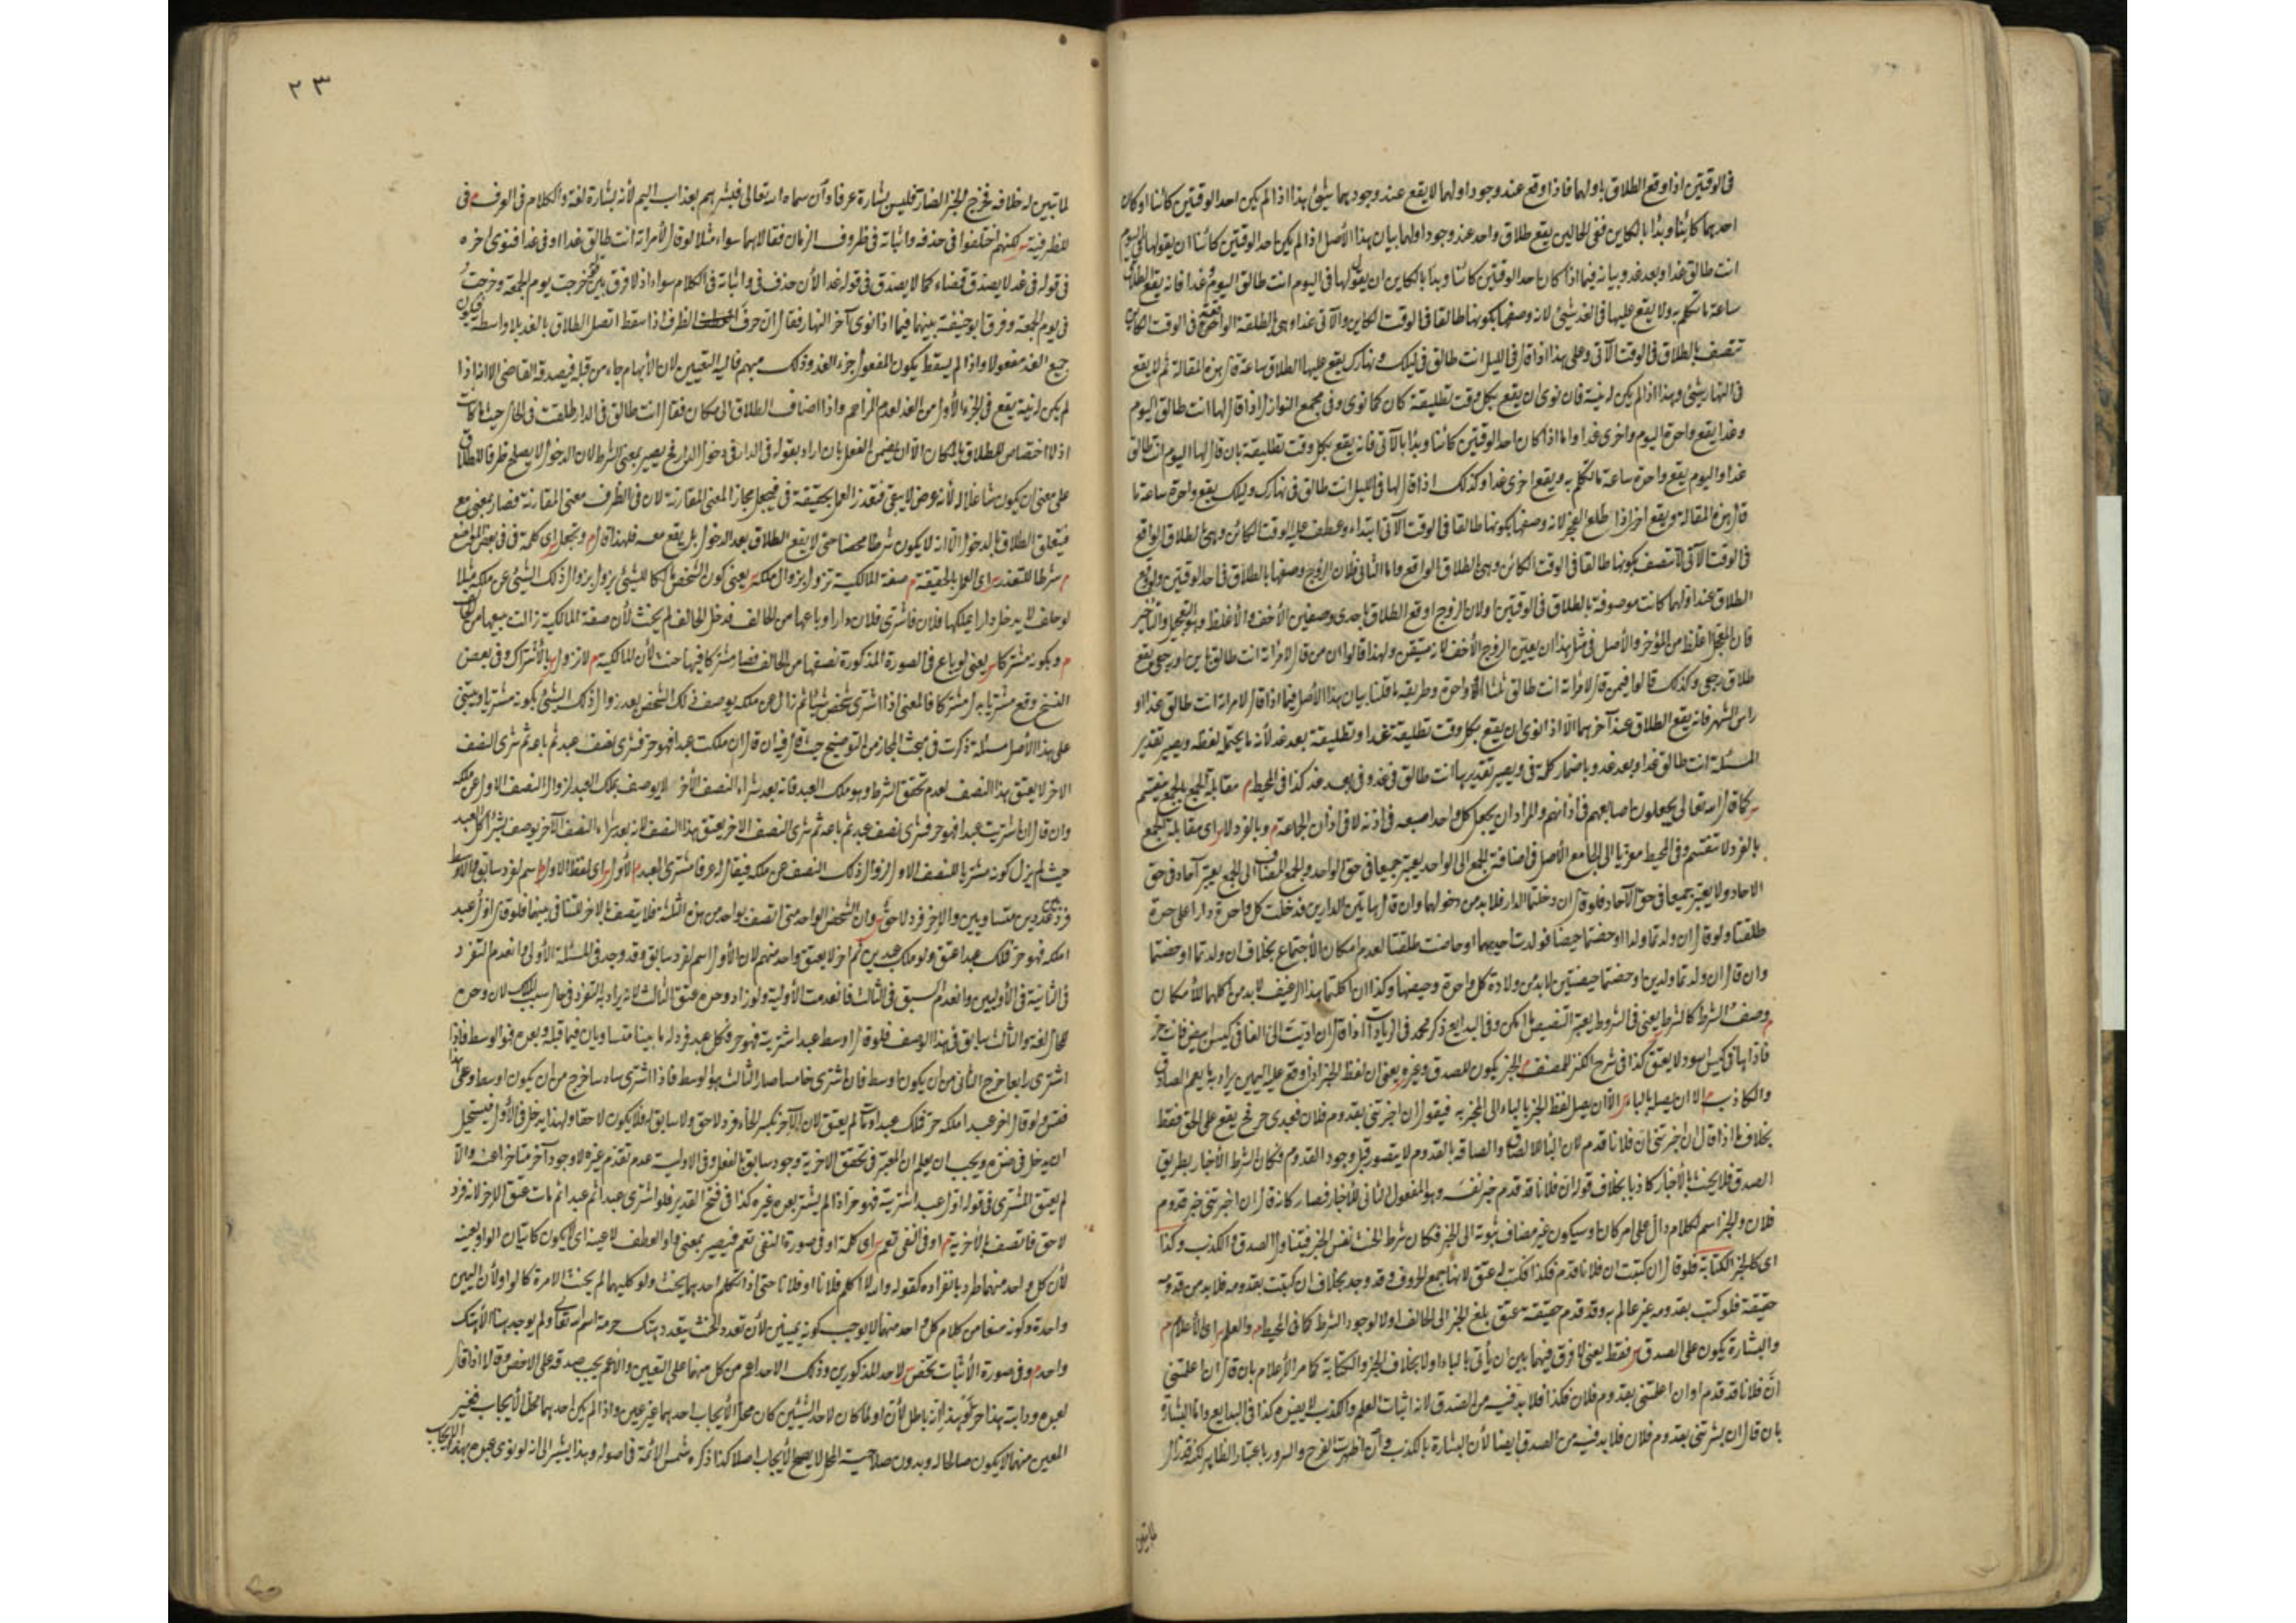 في الوقتين اذا وقع الطلاق باولهما فاذا وقع عند وجود اولهما لا يقع عند وجودهما شيئ هذا اذا لم يكن احد الوقتين كائنا او كان
احدهما كائنا وبدأ بالكاين ففي الحالين يقع طلاق واحد عند وجود اولهما بيان هذا الأصل اذا لم يكن احد الوقتين كائنا ان يقول لها في اليوم
انت طالق غدا وبعد غد وبيانه فيما اذا كان احد الوقتين كائنا وبدا بالكاين ان يقول لها في اليوم انت طالق اليوم وغدا فانه يقع الطلاق
ساعة ما تكلم به ولا يقع عليها في الغد شيئ لانه وصفها بكونها طالقا في الوقت الكاين والآتي غدا وهي بالطلقة الواقعة في الوقت الكاين
تتصف بالطلاق في الوقت الآتي وعلى هذا اذا قال في الليل انت طالق في ليلك ونهارك يقع عليها الطلاق ساعة قال هذه المقالة ثم لا يقع
في النهار شيئ وهذا اذا لم يكن له نية فان نوى ان يقع بكل وقت تطليقة كان كما نوى وفي مجمع النوازل اذا قال لها انت طالق اليوم
وغدا يقع واحدة اليوم واخرى غدا واما اذا كان احد الوقتين كائنا وبدأ بالآتي فانه يقع بكل وقت تطليقة بان قال لها اليوم انت طالق
غدا واليوم يقع واحدة ساعة ما تكلم به ويقع اخرى غدا وكذلك اذا قال لها في الليل انت طالق في نهارك وليلك يقع واحدة ساعة ما
قال هذه المقالة ويقع اخرى اذا طلع الفجر لانه وصفها بكونها طالقا في الوقت الآتي ابتداء وعطف عليه الوقت الكائن وهي بالطلاق الواقع
في الوقت الآتي لا تتصف بكونها طالقا في الوقت الكائن وهي بالطلاق الواقع واما الثاني فلان الزوج وصفها بالطلاق في احد الوقتين ولو وقع
الطلاق عند اولهما كانت موصوفة بالطلاق في الوقتين ولان الزوج اوقع الطلاق باحدى وصفين الأخف والأغلظ وهو التعجيل والتأخير
فان المعجل اغلظ من المؤخر والأصل في مثل هذا ان يعين الزوج الأخف لانه متيقن ولهذا قالوا ان من قال لامرأته انت طالق باين او رجعي يقع
طلاق رجعي وكذلك قالوا فيمن قال لامرأته انت طالق ثلثا او واحدة وطريقه ما قلنا بيان هذا الأصل فيما اذا قال لامراته انت طالق غدا او
راس الشهر فانه يقع الطلاق عند آخرهما الا اذا نوى ان يقع بكل وقت تطليقة غدا وتطليقة بعد غد لأنه ما يحتمله لفظه ويصير تقدير
المسئلة انت طالق غدا وبعد غد وباضمار كلمة في ويصير تقديرها انت طالق في غد وفي بعد غد كذا في المحيط م مقابلة الجمع بالجمع ينقسم
ش كما قال الله تعالى يجعلون اصابعهم في اذانهم والمراد ان يجعل كل واحد اصبعه في اذنه لا في اذان الجماعة م وبالفرد لا ش اى مقابلة الجمع
بالفرد لا تنقسم وفي المحيط معزيا الى الجامع الأصل في اضافة الجمع الى الواحد يعتبر جميعا في حق الواحد والجمع المضاف الى الجمع يعتبر آحاد في حق
الآحاد ولا يعتبر جميعا في حق الآحاد فلو قال ان دخلتما الدار فلا بد من دخولهما وان قال هاتين الدارين فدخلت كل واحدة دارا على حدة
طلقتا ولو قال ان ولدتما ولدا او حضتما حيضا فولدت احيهما او حاضت طلقتا لعدم امكان الأجتماع بخلاف ان ولدتما او حضتما
وان قال ان ولدتما ولدين او حضتما حيضتين لا بد من ولادة كل واحدة وحيضها وكذا ان اكلتما هذا الرغيف لا بد من اكلهما للأمكان
م وصف الشرط كالشرط ش يعني في الشروط يعتبر التنصيص ما امكن وفي البدايع ذكر محمد في الزيادات اذا قال ان اديت الي الفا في كيس ابيض فانت حر
فاداها في كيس اسود لا يعتق كذا في شرح الكنز للمصنف م الخبر يكون للصدق وغيره ش يعني ان لفظ الخبر اذا وقع عليه اليمين يراد به ما يعم الصادق
والكاذب م الا ان يصله بالباء ش الا ان يصل لفظ الخبر بالباء الى المخبر به فيقول ان اخبرتني بقدوم فلان فعبدي حر فح يقع على الحق فقط
بخلاف ما اذا قال ان اخبرتني ان فلانا قدم لان الباء للالصاق والصاقه بالقدوم لا يتصور قبل وجود القدوم فكان الشرط الأخبار بطريق
الصدق فلا يحنث بالأخبار كاذبا بخلاف قوله ان فلانا قد قدم خبر نفسه وهو المفعول الثاني للأخبار فصار كانه قال ان اخبرتني خبر قدوم
فلان والخبر اسم لكلام دال على امر كان او سيكون غير مضاف ثبوته الى الخبر فكان شرط الحنث نفس الخبر فيتناول الصدق والكذب وكذا
اى كالخبر الكتابة فلو قال ان كتبت ان فلانا قدم فكذا فكتب له عتق لانها جمع الحروف وقد وجد بخلاف ان كتبت بقدومه فلا بد من قدومه
حقيقة فلو كتب بقدومه غير عالم به وقد قدم حقيقة عتق بلغ الخبر الى الحالف اولا لوجود الشرط كما في المحيط م والعلم ش اى الأعلام م
والبشارة يكون على الصدق ش فقط يعني لا فرق فيهما بين ان يأتي بالباء اولا بخلاف الخبر والكتابة كما مر الأعلام بان قال ان اعلمتني
ان فلانا قد قدم او ان اعلمتني بقدوم فلان فكذا فلا بد فيه من الصدق لانه اثبات العلم والكذب لا يفيده كذا في البدايع واما البشارة
بان قال ان بشرتني بقدوم فلان فلا بد فيه من الصدق ايضا لأن البشارة بالكذب وان اظهرت الفرح والسرور باعتبار الظاهر لكنه قد زال
٢٣
لما تبين له خلافه فخرج الخبر الضار فليس بشارة عرفا وان سماه الله تعالى فبشرهم بعذاب اليم لأنه بشارة لغة والكلام في العرف م في
للظرفية ش لكنهم اختلفوا في حذفه واثباته في ظروف الزمان فقالا هما سواء مثلا لو قال لأمرأته انت طالق غدا او في غد فنوى اخره
في قوله في غد لا يصدق قضاء كما لا يصدق في قوله غدا لأن حذف في واثباته في الكلام سواء اذ لا فرق بين خرجت يوم الجمعة وخرجت
في يوم الجمعة وفرق ابو حنيفة بينهما فيما اذا نوى آخر النهار فقال ان حرف الظرف اذا سقط اتصل الطلاق بالغد بلا واسطة فيكون
جميع الغد مفعولا واذا لم يسقط يكون المفعول جزء الغد وذلك مبهم فاليه التعيين لان الأبهام جاء من قبله فيصدقه القاضي الا انه اذا
لم يكن له نية يقع في الجزء الأول من الغد لعدم المزاحم واذا اضاف الطلاق الى مكان فقال انت طالق في الدار طلقت في الحال حيث ما كانت
اذ لا اختصاص للطلاق بالمكان الا ان يضمن الفعل بان اراد بقوله في الدار في دخول الدار فح يصير بمعنى الشرط لان الدخول لا يصلح ظرفا للطلاق
على معنى ان يكون شاغلا له لأنه عرض لا يبقى فتعذر العمل بحقيقة في فيجعل مجازا لمعنى المقارنة لان في الظرف معنى المقارنة فصار بمعنى مع
فيتعلق الطلاق بالدخول الا انه لا يكون شرطا محضا حتى لا يقع الطلاق بعد الدخول بل يقع معه فلهذا قال م وتجعل ش اى كلمة في في بعض المواضع
م شرطا للتعذر ش اى العمل بالحقيقة م صفة المالكية تزول بزوال ملكه ش يعني كون الشخص مالكا للشيئ يزول بزوال ذلك الشيئ عن ملكه مثلا
لو حلف لا يدخل دارا يملكها فلان فاشترى فلان دارا وباعها من الحالف فدخل الحالف لم يحنث لأن صفة المالكية زالت ببيعها من الحالف
م وبكونه مشتركا ش يعني لو باع في الصورة المذكورة نصفها من الحالف فصار مشتركا فيها حنث لأن المالكية م لا تزول ش بالأشتراك وفي بعض
النسخ وقع مشتريا بدل مشتركا فالمعنى اذا اشترى شخص شيئا ثم زال عن ملكه يوصف ذلك الشخص بعد زوال ذلك الشيئ بكونه مشتريا ويبتني
على هذا الأصل مسئلة ذكرت في مبحث المجاز من التوضيح حيث قال فيه ان قال ان ملكت عبدا فهو حر فشرى نصف عبد ثم باعه ثم شرى النصف
الاخر لا يعتق هذا النصف لعدم تحقق الشرط وهو ملك العبد فانه بعد شراء النصف الأخر لا يوصف بملك العبد لزوال النصف الاول عن ملكه
وان قال ان اشتريت عبدا فهو حر فشرى نصف عبد ثم باعه ثم شرى النصف الاخر يعتق هذا النصف لانه بعد شراء النصف الآخر يوصف بشراء كل العبد
حيث لم يزل كونه مشتريا للنصف الاول لزوال ذلك النصف عن ملكه فيقال له عرفا مشترى العبد م الأول ش اى لفظ الاول م اسم لفرد سابق والأوسط
فرد بين عددين متساويين والاخر فرد لاحق ش وان الشخص الواحد متى اتصف بواحد من هذه الثلثة فلا يتصف بالاخر للتنافي بينهما فلو قال اول عبد
املكه فهو حر فملك عبدا عتق ولو ملك عبدين ثم اخر لا يعتق واحد منهم لان الأول اسم لفرد سابق وقد وجد في المسئلة الأولى وانعدم التفرد
في الثانية في الأوليين وانعدم السبق في الثالث فانعدمت الأولية ولو زاد وحده عتق الثالث لانه يراد به التفرد في حال سبب الملك لان وحده
للحال لغة والثالث سابق في هذا الوصف فلو قال اوسط عبد اشتريته فهو حر فكل عبد فرد له ما بينا متساويان فيما قبله وبعده فهو الوسط فاذا
اشترى رابعا خرج الثاني من ان يكون اوسط فان اشترى خامسا صار الثالث هو الوسط فاذا اشترى سادسا خرج من ان يكون اوسط وعلى هذا
فقس ولو قال اخر عبد املكه حر فملك عبدا ومات لم يعتق لان الآخر بكسر الخاء فرد لاحق ولا سابق له فلا يكون لاحقا ولهذا يدخل في الأول فيستحيل
ان يدخل في ضده ويجب ان يعلم ان المعتبر في تحقق الاخرية وجود سابق بالفعل وفي الاولية عدم تقدم غيره لا وجود آخر متأخر عنه والا
لم يعتق المشترى في قوله اول عبد اشتريته فهو حر اذا لم يشتر بعده غيره كذا في فتح القدير فلو اشترى عبدا ثم عبدا ثم مات عتق الاخر لانه فرد
لاحق فاتصف بالأخرية م او في النفي تعم ش اى كلمة او في صورة النفي تعم فيصير بمعنى واو العطف لا عينه اى لا يكون كاتيان الواو بعينه
لأن كل واحد منهما مراد بانفراده كقوله والله لا اكلم فلانا او فلانا حتى اذا تكلم احدهما يحنث ولو كليهما لم يحنث الا مرة كالواو لأن اليمين
واحدة وكونه منعا من كلام كل واحد منهما لا يوجب كونه يمينين لأن تعدد الحنث بتعدد هتك حرمة اسم الله تعالى ولم يوجد هنا الا هتك
واحد م وفي صورة الأثبات تخص ش لاحد المذكورين وذلك الاحد اعم من كل منهما على التعيين والأعم يجب صدقه على الاخص وقالا اذا قال
لعبده ودابته هذا حر او هذا انه باطل لأن او لما كان لاحد الشيئين كان محل الأيجاب احدهما غير عين واذا لم يكن احدهما محلا للأيجاب فغير
المعين منهما لا يكون صالحا له وبدون صلاحية المحل لا يصح الأيجاب اصلا كذا ذكره شمس الائمة في اصوله وهذا يشير الى انه لو نوى عبده بهذا الأيجاب